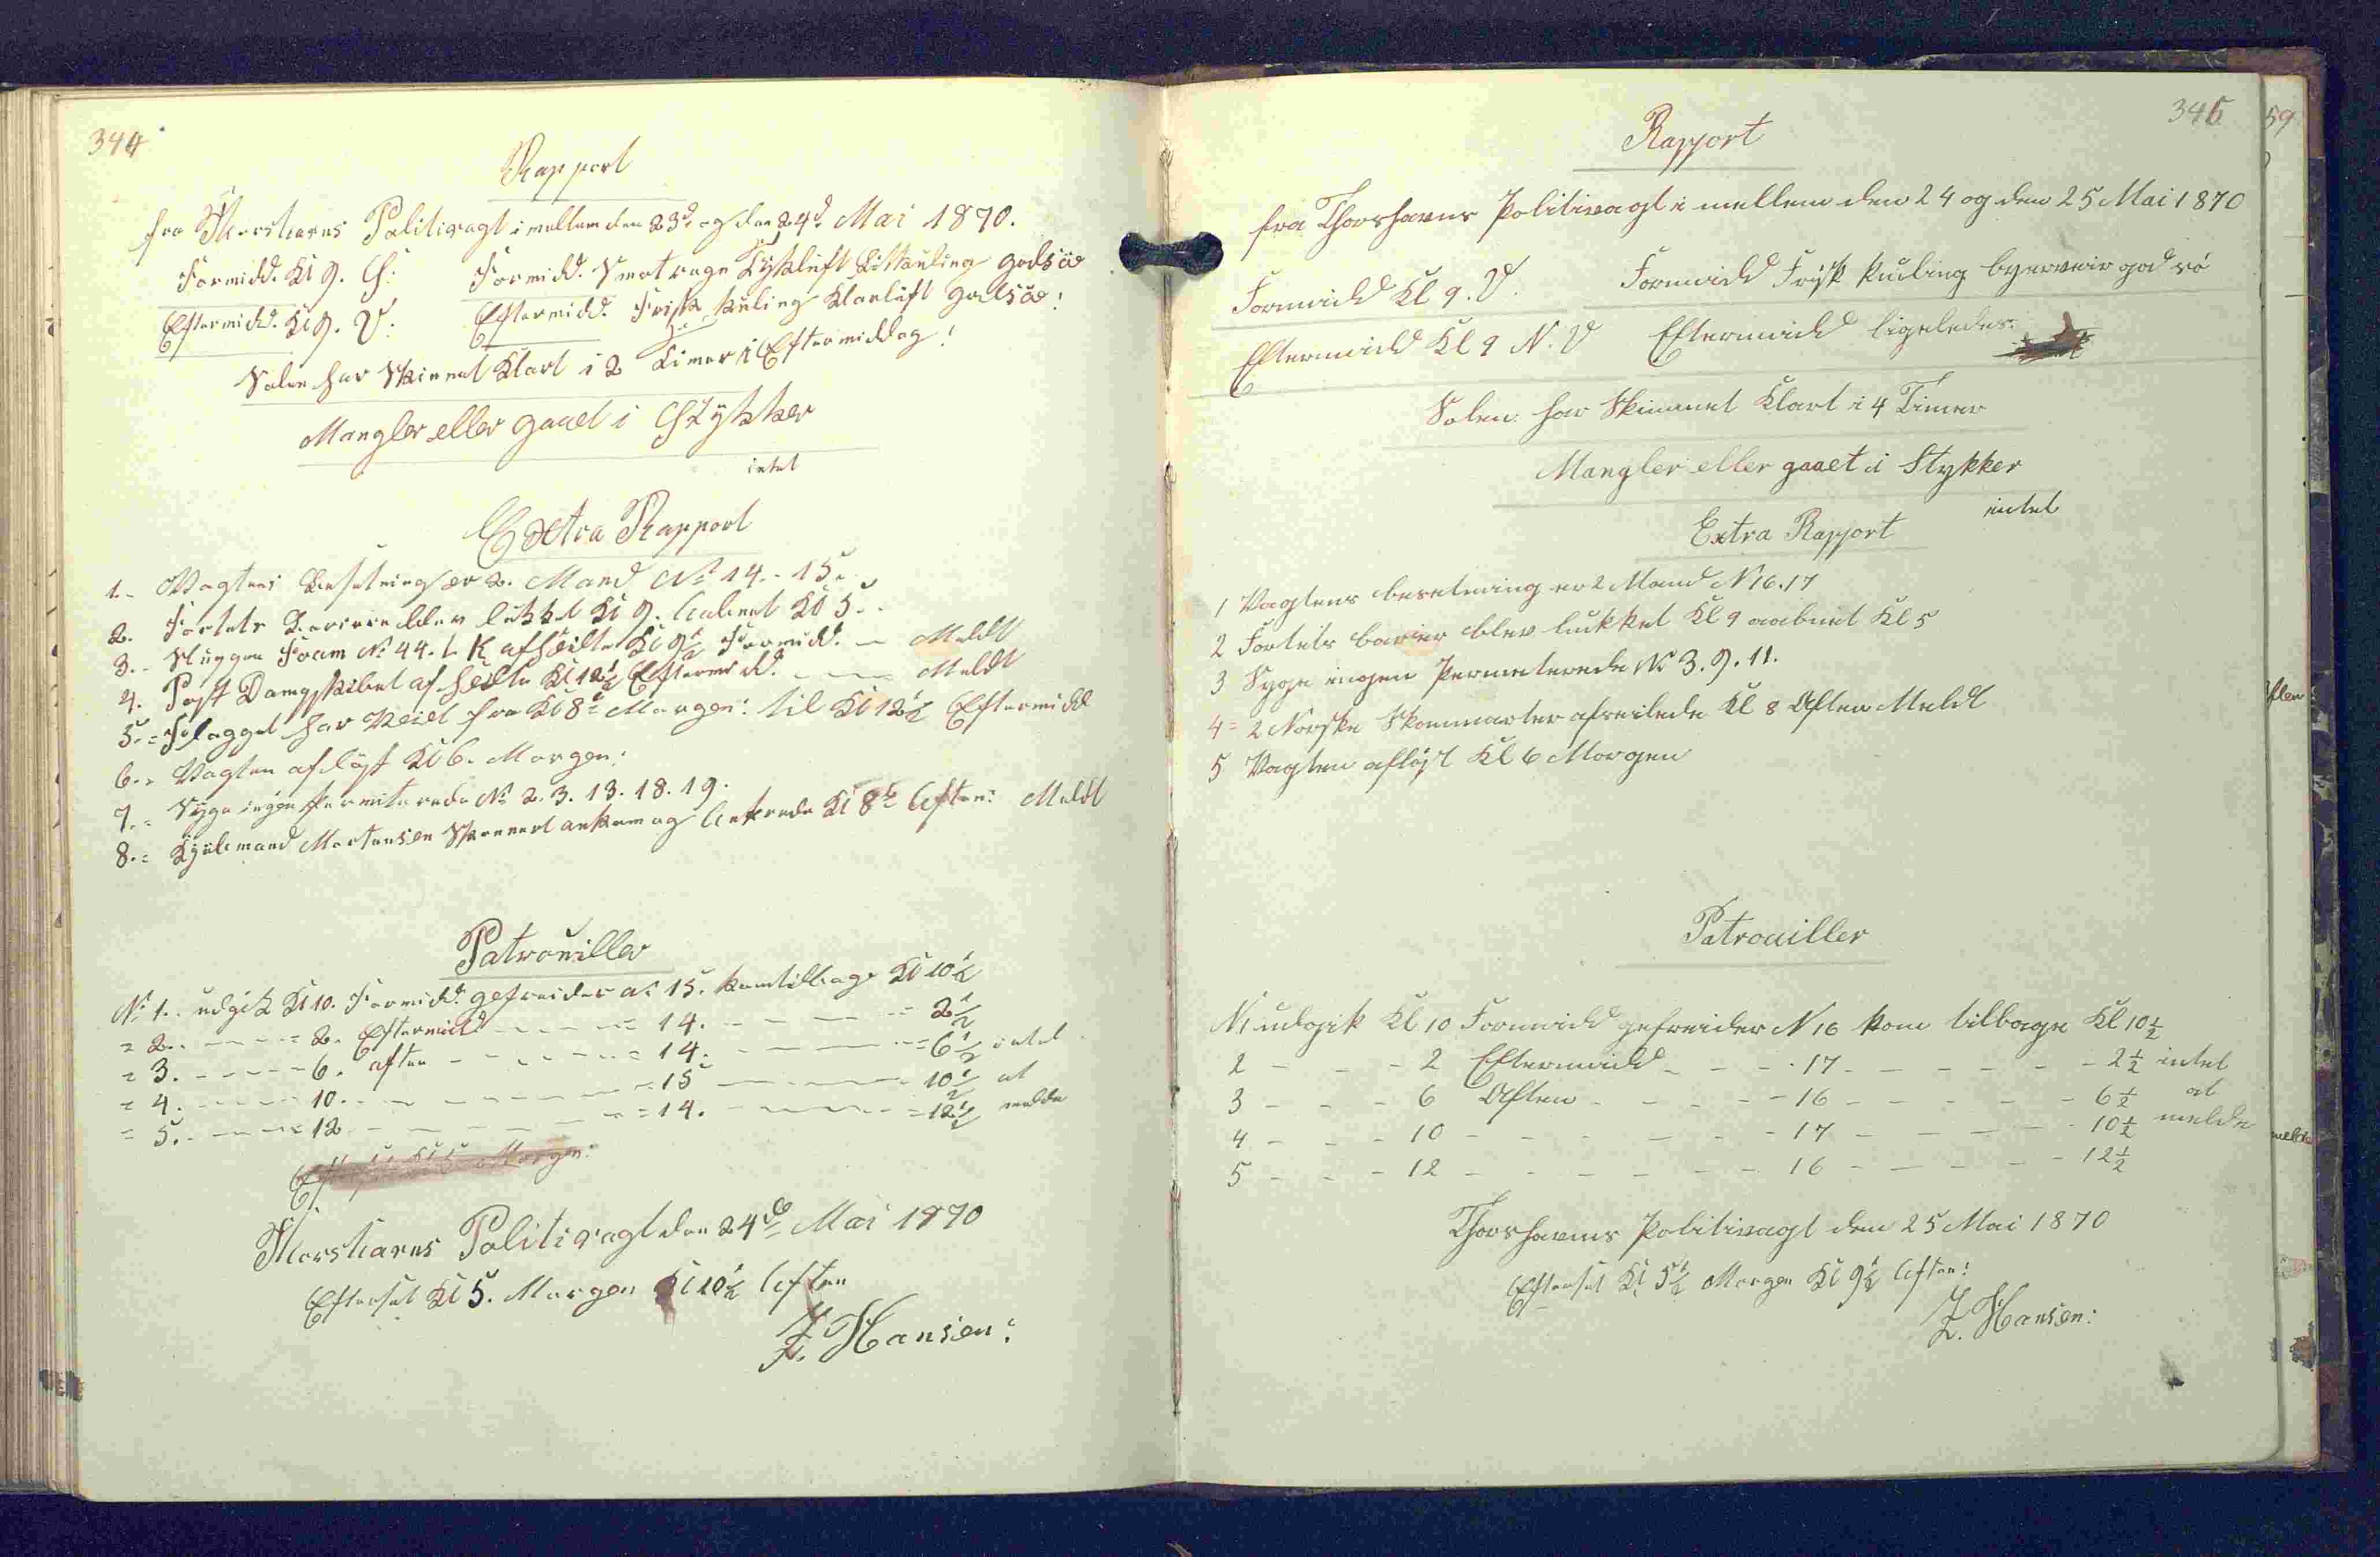 344
Rapport
fra Thorshavns Politivagt imellem den 23d og den 24d Mai 1870.
Formidd. Kl 9. S: Formidd. Smat ragn Tykluft Litkuling god söe
Eftermidd. Kl 9. V: Eftermidd. Frisk kuling Klarluft god söe:
Solen har Skinnet Klart i 2 Timer i Eftermiddag!
Mangler eller gaael i Stykker
intet
Extra Rapport
1.- Vagtens Besetning er 2. Mand No 14.- 15.
2. Fortets Barrier blev lukket Kl 9. Aabnet Kl 5.
3.- Sluppen Foam No 44. L K afseilte Kl 9½ Formidd. - Meldt
4. Post Dampskibet afseilte Kl 12½ Eftermidd. - - - Meldt
5.= Flagget har Veiet fra Kl 8 Morgen: til Kl 12½ Eftermidd
6.= Vagten aflöst Kl 6. Morgen:
7.= Syge ingen Permiterede No 2. 3. 13. 18. 19.
8.= Kjöbmand Mortensen Skonnert ankom og Ankrede Kl 8½ Aften: Meldt
Patrouiller
No 1. udgik Kl 10. Formidd. gefreider No 15. kom tilbage Kl 10½
= 2. - - - = 2. Eftermidd - - - = 14. - - - = 2½
= 3. - - - - 6. aften - - - - = 14. - - - = 6½ intet
= 4. - - - - 10. - - - - - = 15 - - - - 10½ at
= 5. - - - = 12 - - - - - = 14. - - - = 12½ melde
Morgen:
Thorshavns Politivagt den 24de Mai 1870
Efterset Kl 5. Morgen Kl 10½ Aften
Z. Hansen:
345
Rapport
fra Thorshavns Politivagt i mellem den 24 og den 25 Mai 1870
Formidd Kl 9. V. Formidd Frisk Kuling byerveir god sö
Eftermidd Kl 9 N. V Eftermidd ligeledes:
Solen har Skinnet Klart i 4 Timer
Mangler eller gaaet i Stykker
intet
Extra Rapport
1 Vagtens besetning er 2 Mand N 16. 17
2 Fortets barier blev lukket Kl 9 aabnet Kl 5
3 Syge ingen Permeterede No 3. 9. 11.
4 = 2 Norske Skonnarter afseilede Kl 8 Aften Meldt
5 Vagten afløst Kl 6 Morgen
Patrouiller
N 1 udgik Kl 10 Formidd gefreider N 16 kom tilbage Kl 10½
2 - - - 2 Eftermidd - - - 17 - - - - - 2½ intet
3 - - - 6 Aften - - - - - 16 - - - - - 6½ at
4 - - - 10 - - - - - - - 17 - - - - - 10½ melde
5 - - - 12 - - - - - - - 16 - - - - - 12½
Thorshavns Politivagt den 25 Mai 1870
Efterset Kl 5½ Morgen Kl 9½ Aften:
Z. Hansen:
59
melde